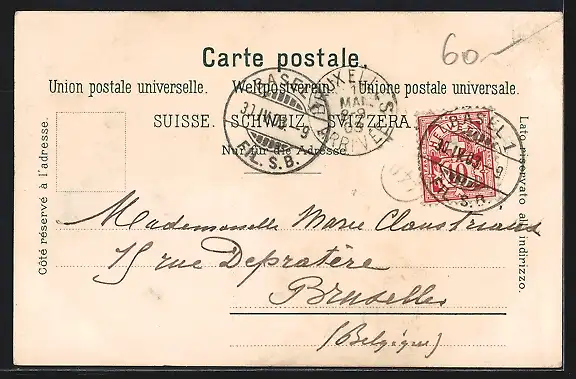 60
Carte postale.
Union postale universelle. Weltpostverein. Unione postale universale.
SUISSE. SCHWEIZ. SVIZZERA.
Nur für die Adresse.
Côté réservé à l'adresse.
Lato riservato all' indirizzo.
BASEL 1
30.IV.03.-9
FIL. S.B.
BRUXELLES
1
MAI
ARRIVÉE
BASEL 1
30.IV.03.-9
FIL. S.B.
HELVETIA
10
Mademoiselle Marie
15 rue Depratère
Bruxelles
(Belgique)